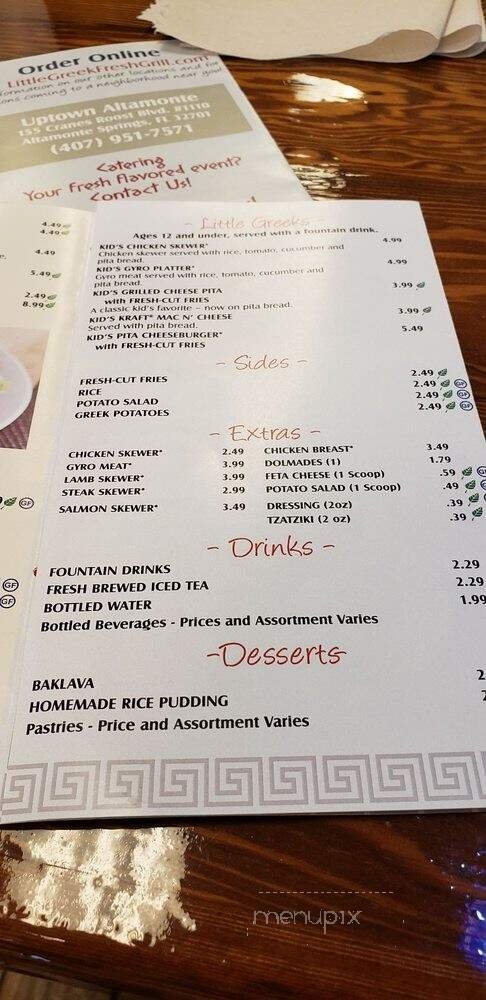 Order Online
LittleGreekFreshGrill.com
information on our other locations and for
coming to a neighborhood near you!
Uptown Altamonte
155 Cranes Roost Blvd. #1110
Altamonte Springs, FL 32701
(407) 951-7571
Catering
Your fresh flavored event?
Contact Us!
4.49
4.49
4.49
5.49
2.49
8.99
GF
GF
GF
- Little Greeks -
Ages 12 and under, served with a fountain drink.
KID'S CHICKEN SKEWER* 4.99
Chicken skewer served with rice, tomato, cucumber and
pita bread.
KID'S GYRO PLATTER* 4.99
Gyro meat served with rice, tomato, cucumber and
pita bread.
KID'S GRILLED CHEESE PITA 3.99
with FRESH-CUT FRIES
A classic kid's favorite – now on pita bread.
KID'S KRAFT® MAC N' CHEESE 3.99
Served with pita bread.
KID'S PITA CHEESEBURGER* 5.49
with FRESH-CUT FRIES
- Sides -
FRESH-CUT FRIES 2.49
RICE 2.49 GF
POTATO SALAD 2.49 GF
GREEK POTATOES 2.49 GF
- Extras -
CHICKEN SKEWER* 2.49 CHICKEN BREAST* 3.49
GYRO MEAT* 3.99 DOLMADES (1) 1.79
LAMB SKEWER* 3.99 FETA CHEESE (1 Scoop) .59
STEAK SKEWER* 2.99 POTATO SALAD (1 Scoop) .49
SALMON SKEWER* 3.49 DRESSING (2oz) .39
TZATZIKI (2 oz) .39
- Drinks -
FOUNTAIN DRINKS 2.29
FRESH BREWED ICED TEA 2.29
BOTTLED WATER 1.99
Bottled Beverages - Prices and Assortment Varies
-Desserts-
BAKLAVA
HOMEMADE RICE PUDDING
Pastries - Price and Assortment Varies
menupix